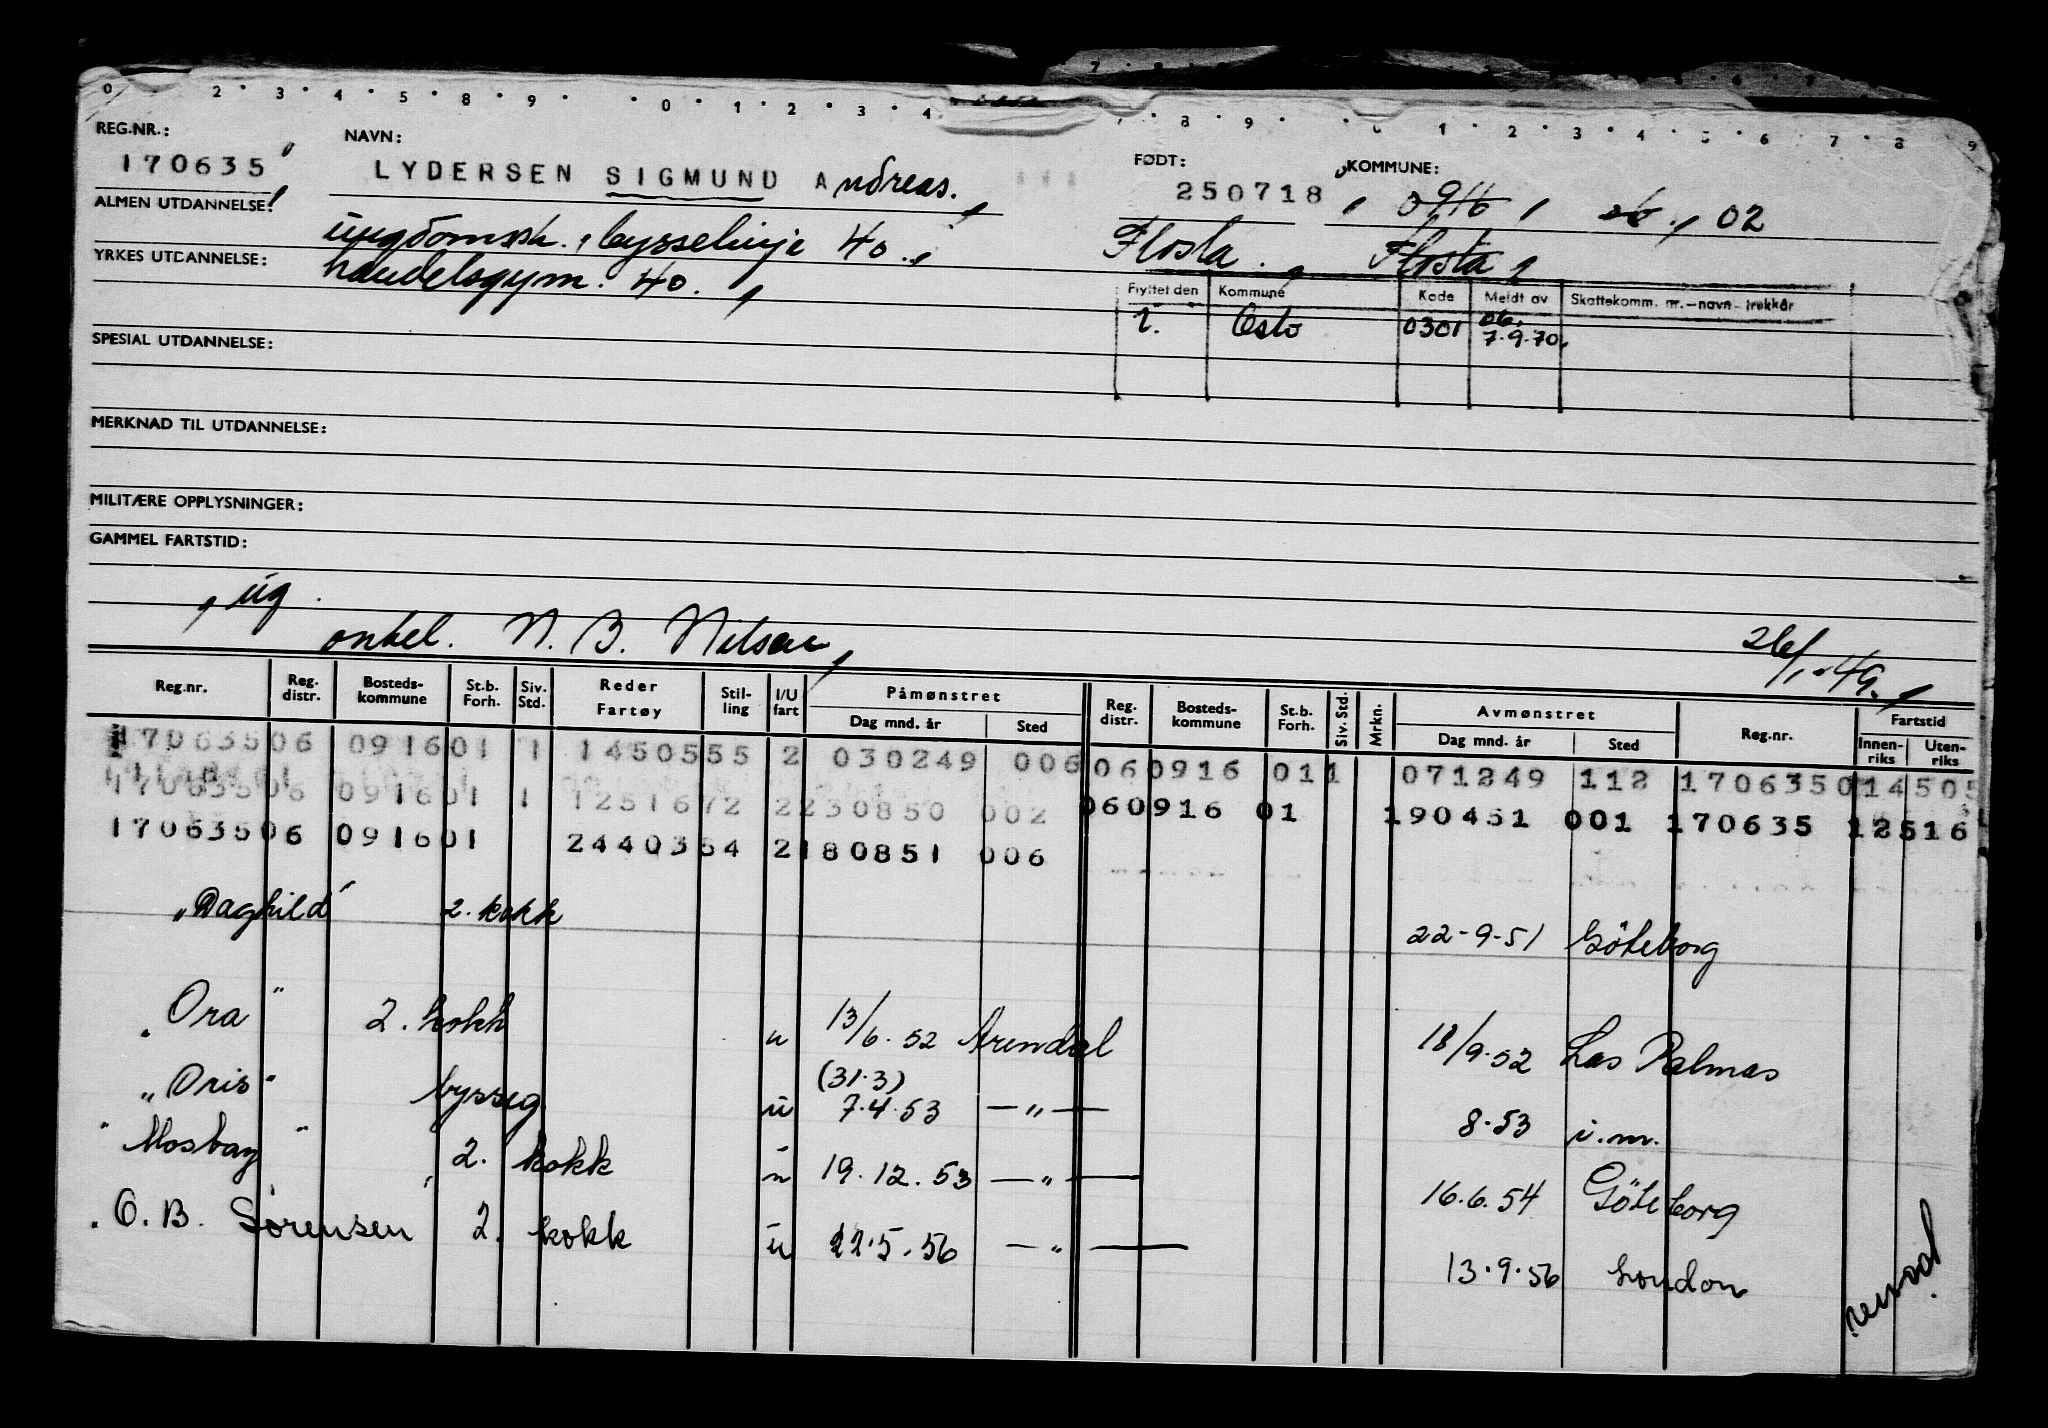 0 · 2 · 3 · 4 · 5 · 8 · 9 · · 0 · 1 · 2 · 3 · 4 · 8 · 9 · · 1 · 2 · 3 · 4 · 5 · 6 · 7 · 8 · 9
REG.NR.: NAVN: FØDT: KOMMUNE:
170635 LYDERSEN SIGMUND Andreas. 250718 0916 06 02
ALMEN UTDANNELSE: ungdomssk., bysselinje 40. Flosta. Flosta
YRKES UTDANNELSE: handelsgym. 40.
Flyttet den Kommune Kode Meldt av Skattekomm. nr.-navn-trekkår
i. Oslo 0301 06. 7.9.70.
SPESIAL UTDANNELSE:
MERKNAD TIL UTDANNELSE:
MILITÆRE OPPLYSNINGER:
GAMMEL FARTSTID:
ug.
onkel. N. B. Nilsen, 26/1-49.
Reg.nr. Reg. distr. Bosteds-kommune St.b. Forh. Siv. Std. Reder Fartøy Stil-ling I/U fart Påmønstret Dag mnd. år Sted Reg. distr. Bosteds-kommune St.b. Forh. Siv. Std. Mrkn. Avmønstret Dag mnd. år Sted Reg.nr. Fartstid Innen-riks Uten-riks
170635 06 0916 01 1 1450555 2 030249 006 060916 011 071249 112 1706350 14505
170635 06 0916 01 1 1251672 2 230850 002 060916 01 190451 001 170635 12516
170635 06 0916 01 2440354 2 180851 006
"Daghild" 2. kokk 22-9-51 Göteborg
"Ora" 2. kokk u 13/6.52 Arendal 18/9.52 Las Palmas
"Oris" bysseg u (31.3) 7.4.53 —"— 8.53 i.m.
"Mosbay" 2. kokk u 19.12.53 —"— 16.6.54 Göteborg
O. B. Sørensen 2. kokk u 22.5.56 —"— 13.9.56 London